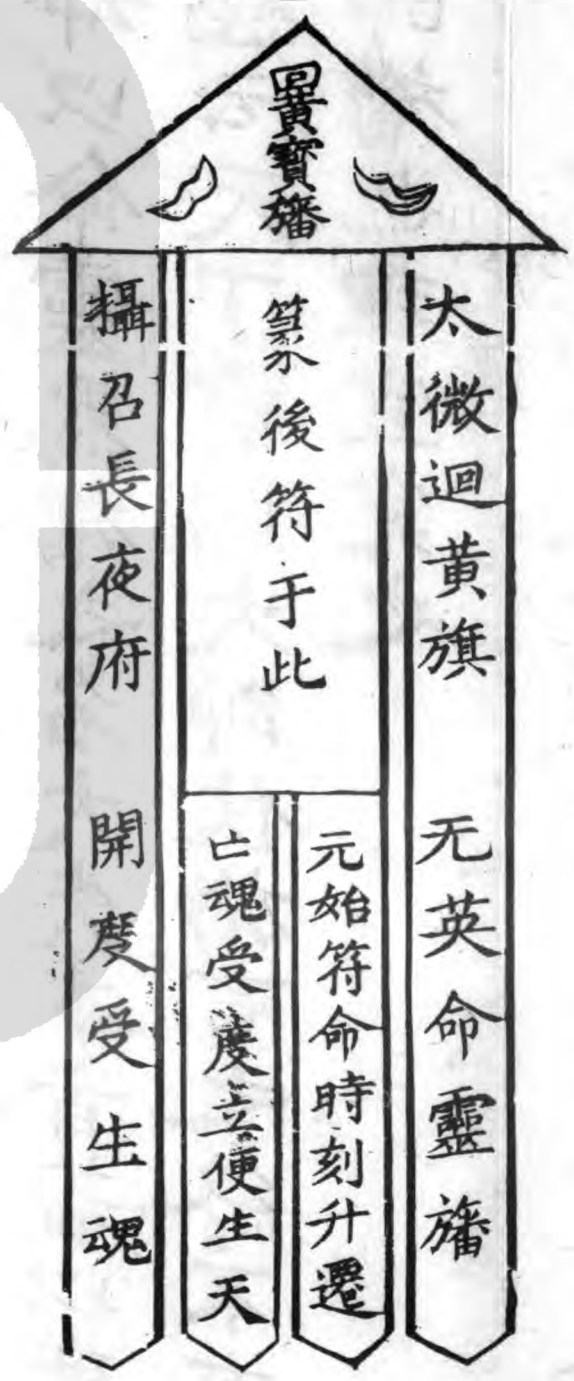 回黃寶旛
太微迴黃旗　无英命靈旛
篆後符于此
元始符命時刻升遷
亡魂受度立便生天
攝召長夜府　開度受生魂